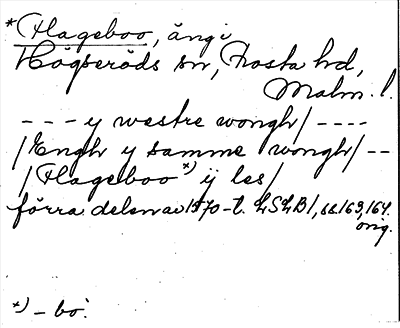 *Flageboo, äng i
Högseröds sn, Frosta hd,
Malm. l.
- - - y westre wongh/ - - - -
/Engh y samme wongh/ - -
/Flageboo *) ÿ les/
förra delen av 1570-t. LSLB 1, ss. 163, 164.
orig.
*) - bo.